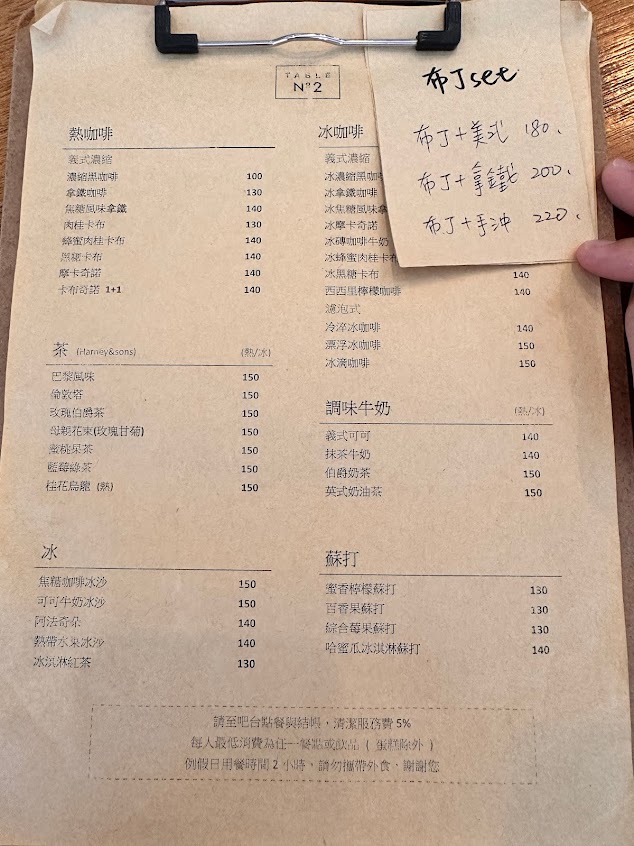 TABLE
Nº2
布丁set
布丁+美式 180.
布丁+拿鐵 200.
布丁+手沖 220.
熱咖啡
義式濃縮
濃縮黑咖啡 100
拿鐵咖啡 130
焦糖風味拿鐵 140
肉桂卡布 130
蜂蜜肉桂卡布 140
黑糖卡布 140
摩卡奇諾 140
卡布奇諾 1+1 140
茶 (Harney&sons) (熱/冰)
巴黎風味 150
倫敦塔 150
玫瑰伯爵茶 150
母親花束(玫瑰甘菊) 150
蜜桃果茶 150
藍莓綠茶 150
桂花烏龍 (熱) 150
冰
焦糖咖啡冰沙 150
可可牛奶冰沙 150
阿法奇朵 140
熱帶水果冰沙 140
冰淇淋紅茶 130
冰咖啡
義式濃縮
冰濃縮黑咖
冰拿鐵咖啡
冰焦糖風味拿
冰摩卡奇諾
冰磚咖啡牛奶
冰蜂蜜肉桂卡布
冰黑糖卡布 140
西西里檸檬咖啡 140
濾泡式
冷淬冰咖啡 140
漂浮冰咖啡 150
冰滴咖啡 150
調味牛奶 (熱/冰)
義式可可 140
抹茶牛奶 140
伯爵奶茶 150
英式奶油茶 150
蘇打
蜜香檸檬蘇打 130
百香果蘇打 130
綜合莓果蘇打 130
哈蜜瓜冰淇淋蘇打 140
請至吧台點餐與結帳，清潔服務費 5%
每人最低消費為任一餐點或飲品 ( 蛋糕除外 )
例假日用餐時間 2 小時，請勿攜帶外食，謝謝您